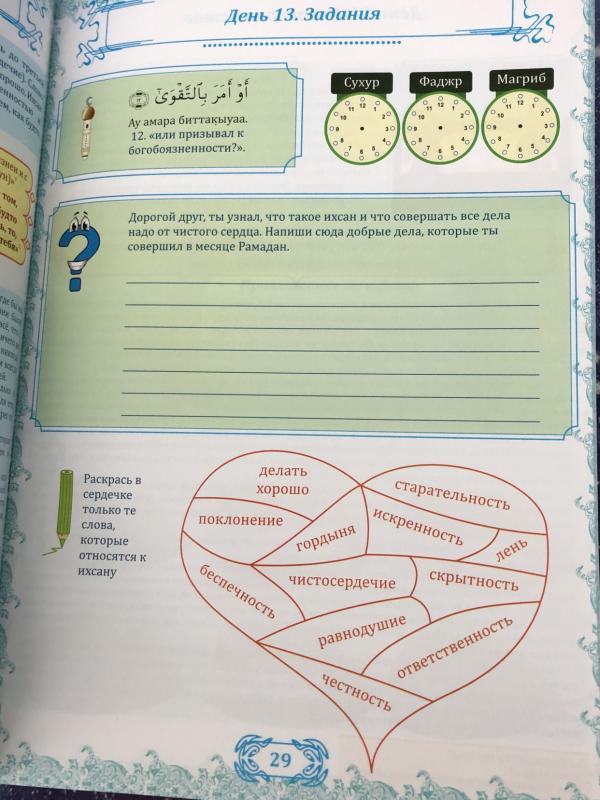 День 13. Задания
أَوْ أَمَرَ بِالتَّقْوَىٰ
Ау амара биттақыуаа.
12. «или призывал к
богобоязненности?».
Сухур
Фаджр
Магриб
Дорогой друг, ты узнал, что такое ихсан и что совершать все дела
надо от чистого сердца. Напиши сюда добрые дела, которые ты
совершил в месяце Рамадан.
Раскрась в
сердечке
только те
слова,
которые
относятся к
ихсану
делать
хорошо
старательность
поклонение
гордыня
искренность
лень
беспечность
чистосердечие
скрытность
равнодушие
ответственность
честность
29